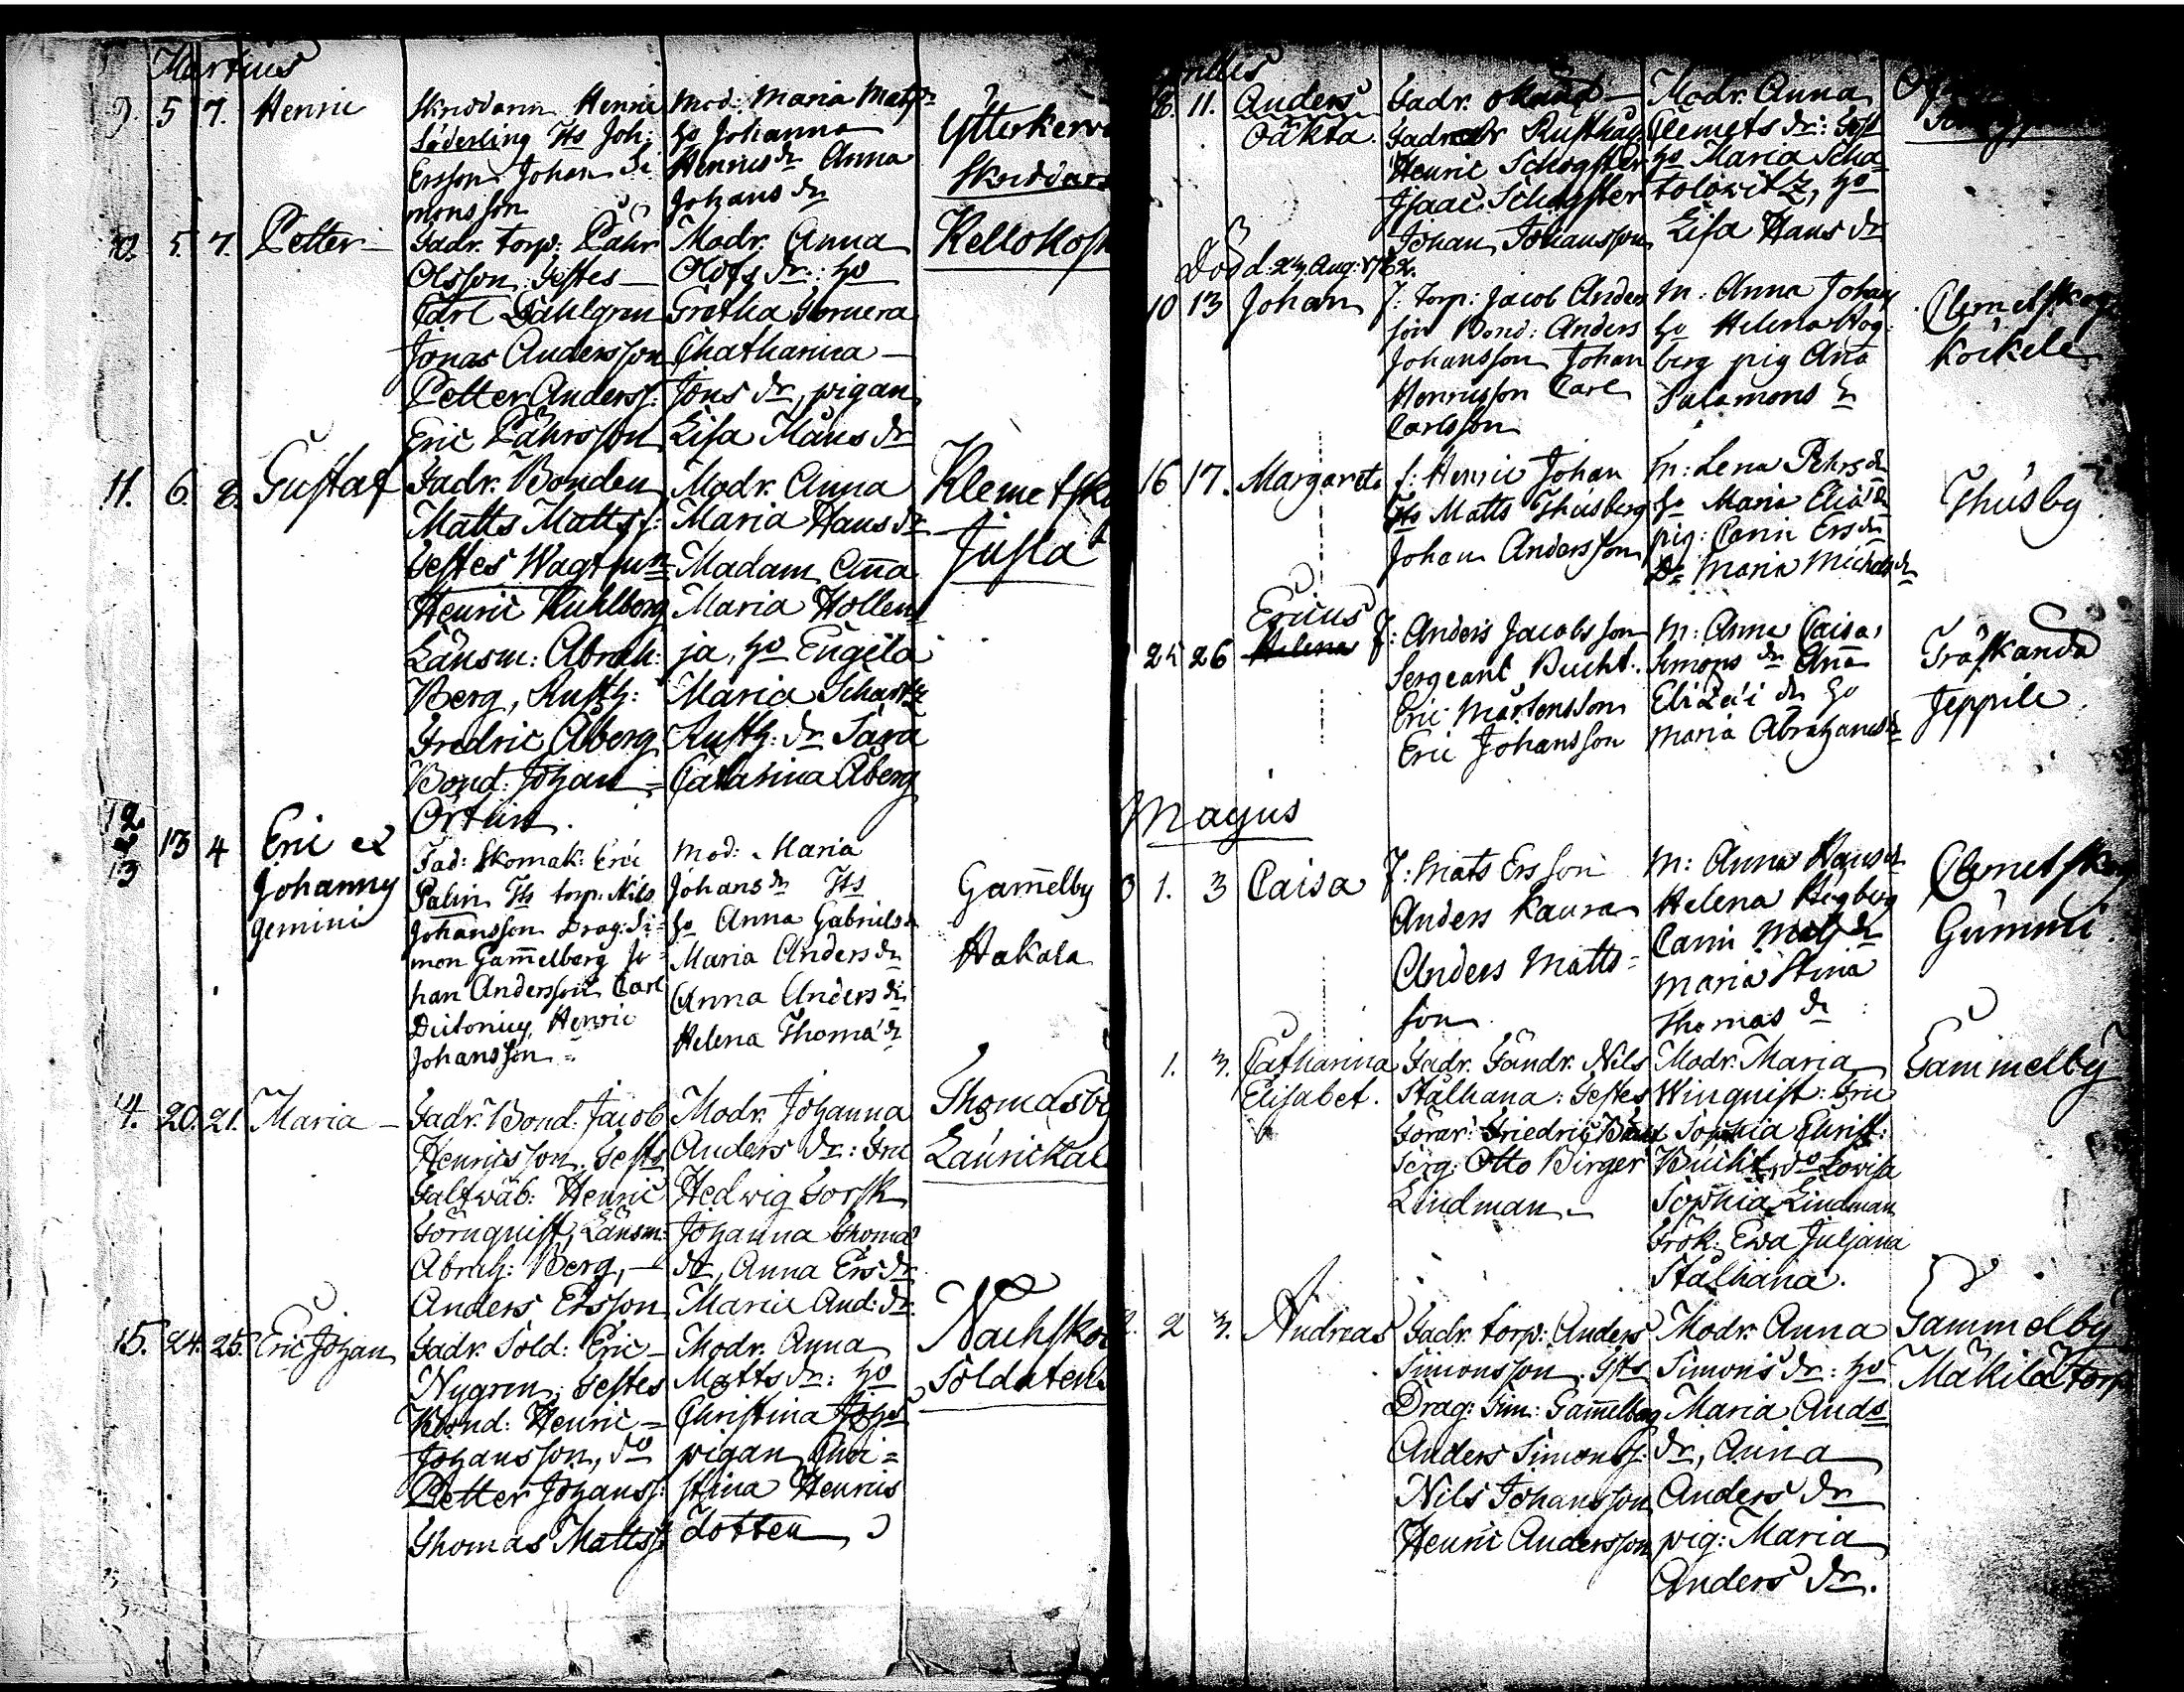 Martius
9. 5 7. Henric
Skroddarn Henric
Söderling Ts Joh:
Ersson Johan Si
monsson
Mod: Maria Mats dr
ho Johanna
Henrics dr Anna
Johans dr
Ytterkerv
Skroddars
10. 5. 7. Petter
Fadr. torp: Påhr
Olsson: Testes
Carl Dahlgren
Jonas Andersson
Petter Anderss:
Eric Påhrsson
Modr. Anna
Olofs dr: ho
Gretha
Chatharina
Jöns dr, pigan
Lisa Måns dr
Kellokosk
11. 6. 8. Gustaf
Fadr. Bonden
Matts Matts:
Testes Wagtm
Henric Kuhlberg
Länsm: Abrah:
Berg, Rusth:
Fredric Åberg
Bond: Johan
Ortin.
Modr. Anna
Maria Hans dr
Madam Ana
Maria Hollen
ja, ho Engela
Maria Schartz
Rusth: dr Sara
Catarina Åberg
Klemetsko
Jusla
12 & 13 13 4 Eric et
Johannes
gemini
Fad: Skomak: Eric
Palin Ts torp: Nils
Johansson Drag: Si
mon Gamelberg Jo
han Andersson Carl
Henric
Johansson
Mod: Maria
Johans dr Ts
ho Anna Gabriels dr
Maria Anders dr
Anna Anders dr
Helena Thoma dr
Gamelby
Hakala
14. 20. 21. Maria
Fadr. Bond: Jacob
Henricsson. Tests
Faltwäb: Henric
Törnquist, Länsm:
Abrah: Berg,
Anders Ersson
Modr. Johanna
Anders dr: Fru
Hedwig
Johanna Thoma
dr, Anna Ers dr
Maria And: dr.
Thomasby
Laurickal
15. 24. 25. Eric Johan
Fadr. Sold: Eric
Nygren: Testes
Henric
Johansson, do
Petter Johanss:
Thomas Matts:
Modr. Anna
Matts dr: ho
Christina
pigan Chri=
stina Henrics
dotter
Nachsko
Soldatens
8. 11. Anders
Fadr.
Fadr Rusthåll
Henric
Isaac
Johan Johansson
Modr. Anna
Clemets dr: Test
ho Maria Scha
tolowitz, ho
Lisa Hans dr
Död d. 27 Aug: 1762.
10 13 Johan
F: Torp: Jacob Anders
son Bond: Anders
Johansson Johan
Henricsson Carl
Carlsson
M: Anna Johan
ho Helena Hog
berg pig Ana
Salomons dr
Clemetskog
Kockele
16 17. Margareta
f: Henric Johan
Ts Matts Thusberg
Johan Andersson
M: Lena Pehrs dr
ho Maria Elia dr
pig: Carin Ers dr
Do Maria Michels dr
Thusby
25 26 Ericus
Helena
F: Anders Jacobsson
Sergeant Bucht.
Eric Mårtensson
Eric Johansson
M: Anna Caisa
Simons dr Ana
ho
Maria Abrahams dr
Träskanda
Jeppile
Majus
1. 3 Caisa
F: Mats Ersson
Anders Kaura
Anders Matts=
son
M: Anna Hans dr
Helena Högberg
Carin Mats dr
Maria Stina
Thomas dr
Clemetskog
Gummi
1. 3. Catharina
Elisabet.
Fadr. Fändr. Nils
Stålhana: Testes
Förar: Friedric
Serg: Otto Birger
Lindman
Modr. Maria
Winquist: Fru
Sophia Christ:
Bucht, do Lovisa
Sophia Lindman
Frök: Ewa Juljana
Stålhana.
Gammelby
2 3. Andreas
Fadr. torp: Anders
Simonsson. Tests
Drag: Sim: Gamelberg
Anders Simonss:
Nils Johansson
Henric Andersson
Modr. Anna
Simons dr: ho
Maria Ands
dr, Anna
Anders dr
pig: Maria
Anders dr.
Gammelby
Mäkilä torp